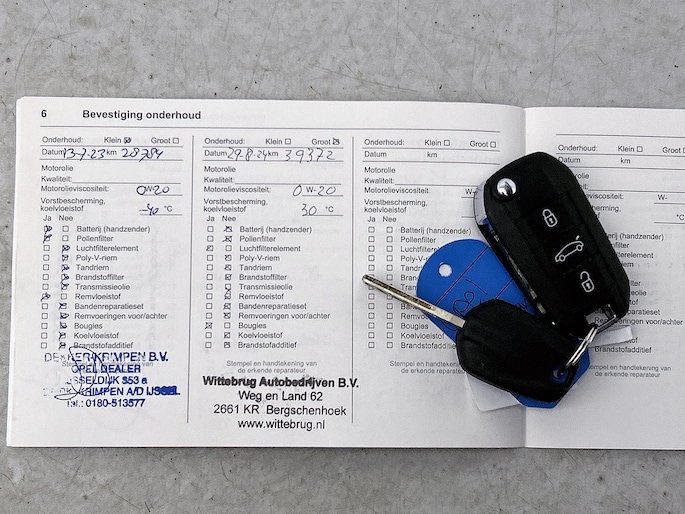 6 Bevestiging onderhoud
Onderhoud: Klein Groot
Datum 13-7-23 km 28784
Motorolie
Kwaliteit:
Motorolieviscositeit: 0W-20
Vorstbescherming,
koelvloeistof -40 °C
Ja Nee
Batterij (handzender)
Pollenfilter
Luchtfilterelement
Poly-V-riem
Tandriem
Brandstoffilter
Transmissieolie
Remvloeistof
Bandenreparatieset
Remvoeringen voor/achter
Bougies
Koelvloeistof
Brandstofadditief
Stempel en handtekening van
de erkende reparateur
DEKKER KRIMPEN B.V.
OPEL DEALER
IJSSELDIJK 353 a
KRIMPEN A/D IJSSEL
Tel.: 0180-513577
Onderhoud: Klein Groot
Datum 29-8-24 km 39372
Motorolie
Kwaliteit:
Motorolieviscositeit: 0W-20
Vorstbescherming,
koelvloeistof 30 °C
Ja Nee
Batterij (handzender)
Pollenfilter
Luchtfilterelement
Poly-V-riem
Tandriem
Brandstoffilter
Transmissieolie
Remvloeistof
Bandenreparatieset
Remvoeringen voor/achter
Bougies
Koelvloeistof
Brandstofadditief
Stempel en handtekening van
de erkende reparateur
Wittebrug Autobedrijven B.V.
Weg en Land 62
2661 KR Bergschenhoek
www.wittebrug.nl
Onderhoud: Klein Groot
Datum km
Motorolie
Kwaliteit:
Motorolieviscositeit: W-
Vorstbescherming,
koelvloeistof
Ja Nee
Batterij (handzender)
Pollenfilter
Luchtfilterelement
Poly-V-riem
Tandriem
Brandstoffilter
Bougies
Koelvloeistof
Brandstofadditief
Stempel en handtekening van
de erkende reparateur
Onderhoud: Klein
Datum km
W-
Batterij (handzender)
Pollenfilter
Luchtfilterelement
Poly-V-riem
Tandriem
Brandstoffilter
Transmissieolie
Remvloeistof
Bandenreparatieset
Remvoeringen voor/achter
Bougies
Koelvloeistof
Brandstofadditief
Stempel en handtekening van
de erkende reparateur